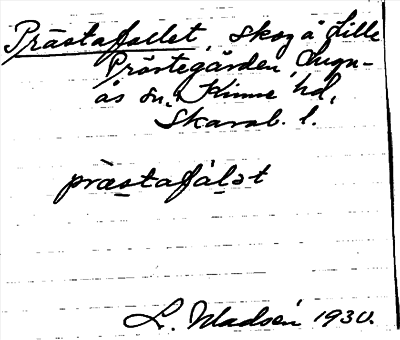 Prästafallet, skog å Lille
Prästegården, Lugn-
ås sn, Kinne hd,
Skarab. l.
præstafàlət
L. Madsén 1930.